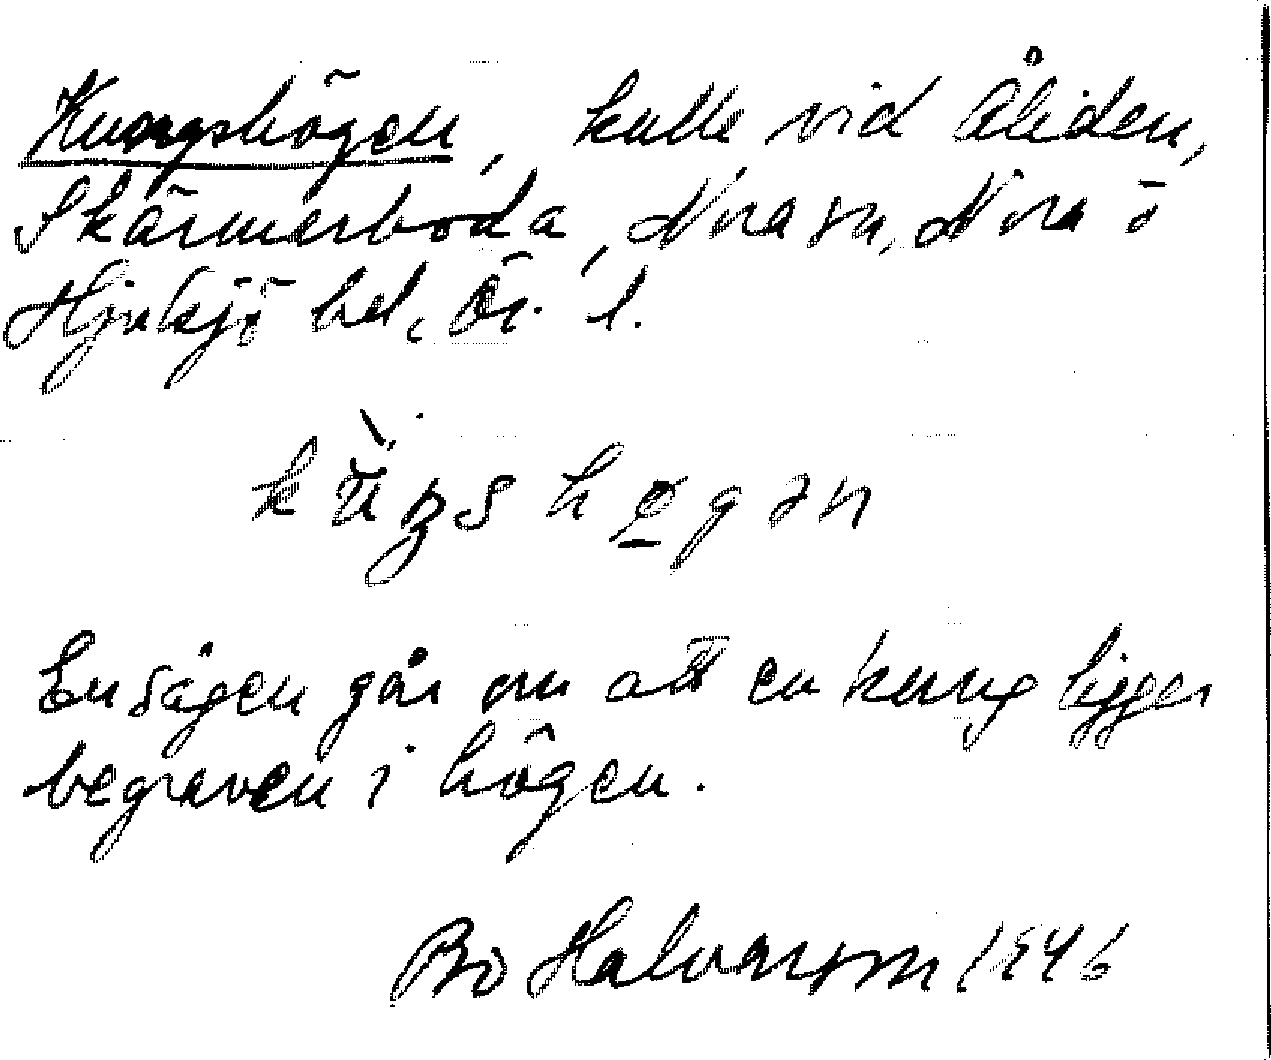 Kungshögen, kulle vid Åliden,
Skärmarboda, Nora sn, Nora o
Hjulsjö bd, Ör. l.
En sägen går om att en kung ligger
begraven i högen.
Bo Halvarson 1946